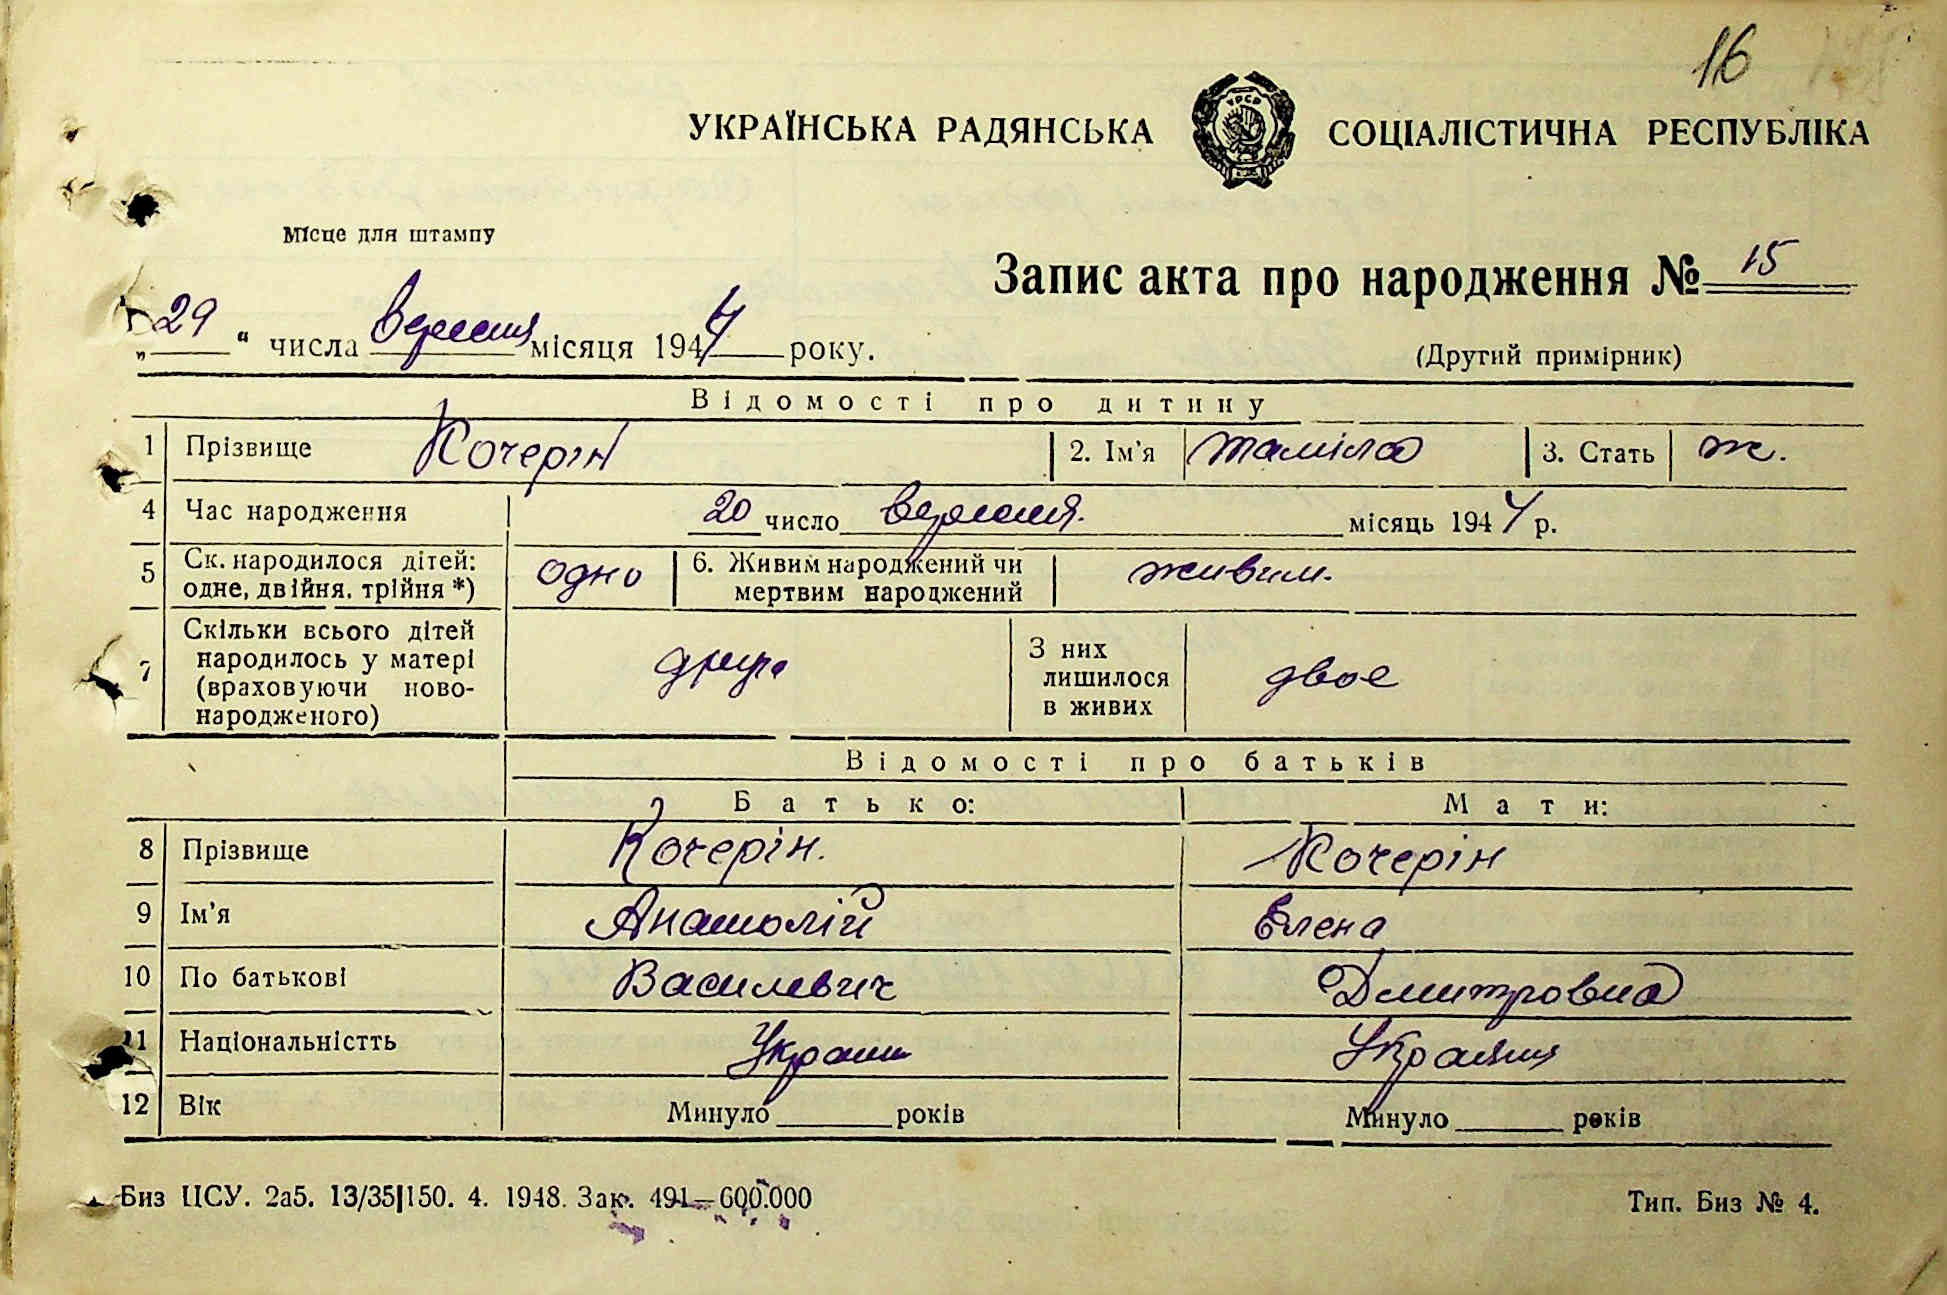 16
УКРАЇНСЬКА РАДЯНСЬКА СОЦІАЛІСТИЧНА РЕСПУБЛІКА
Місце для штампу
Запис акта про народження № 15
„29“ числа вересня місяця 1944 року.
(Другий примірник)
Відомості про дитину
1 Прізвище Кочерін 2. Ім'я Таміла 3. Стать ж.
4 Час народження 20 число вересня. місяць 1944 р.
5 Ск. народилося дітей: одно 6. Живим народжений чи живим.
одне, двійня, трійня *) мертвим народжений
7 Скільки всього дітей
народилось у матері
(враховуючи ново-
народженого)
друге
З них
лишилося
в живих
двое
Відомості про батьків
Батько: Мати:
8 Прізвище Кочерін. Кочерін
9 Ім'я Анатолій Елена
10 По батькові Василевич Дмитровна
11 Національністть
12 Вік Минуло років Минуло років
Биз ЦСУ. 2а5. 13/35|150. 4. 1948. Зак. 491—600.000
Тип. Биз № 4.